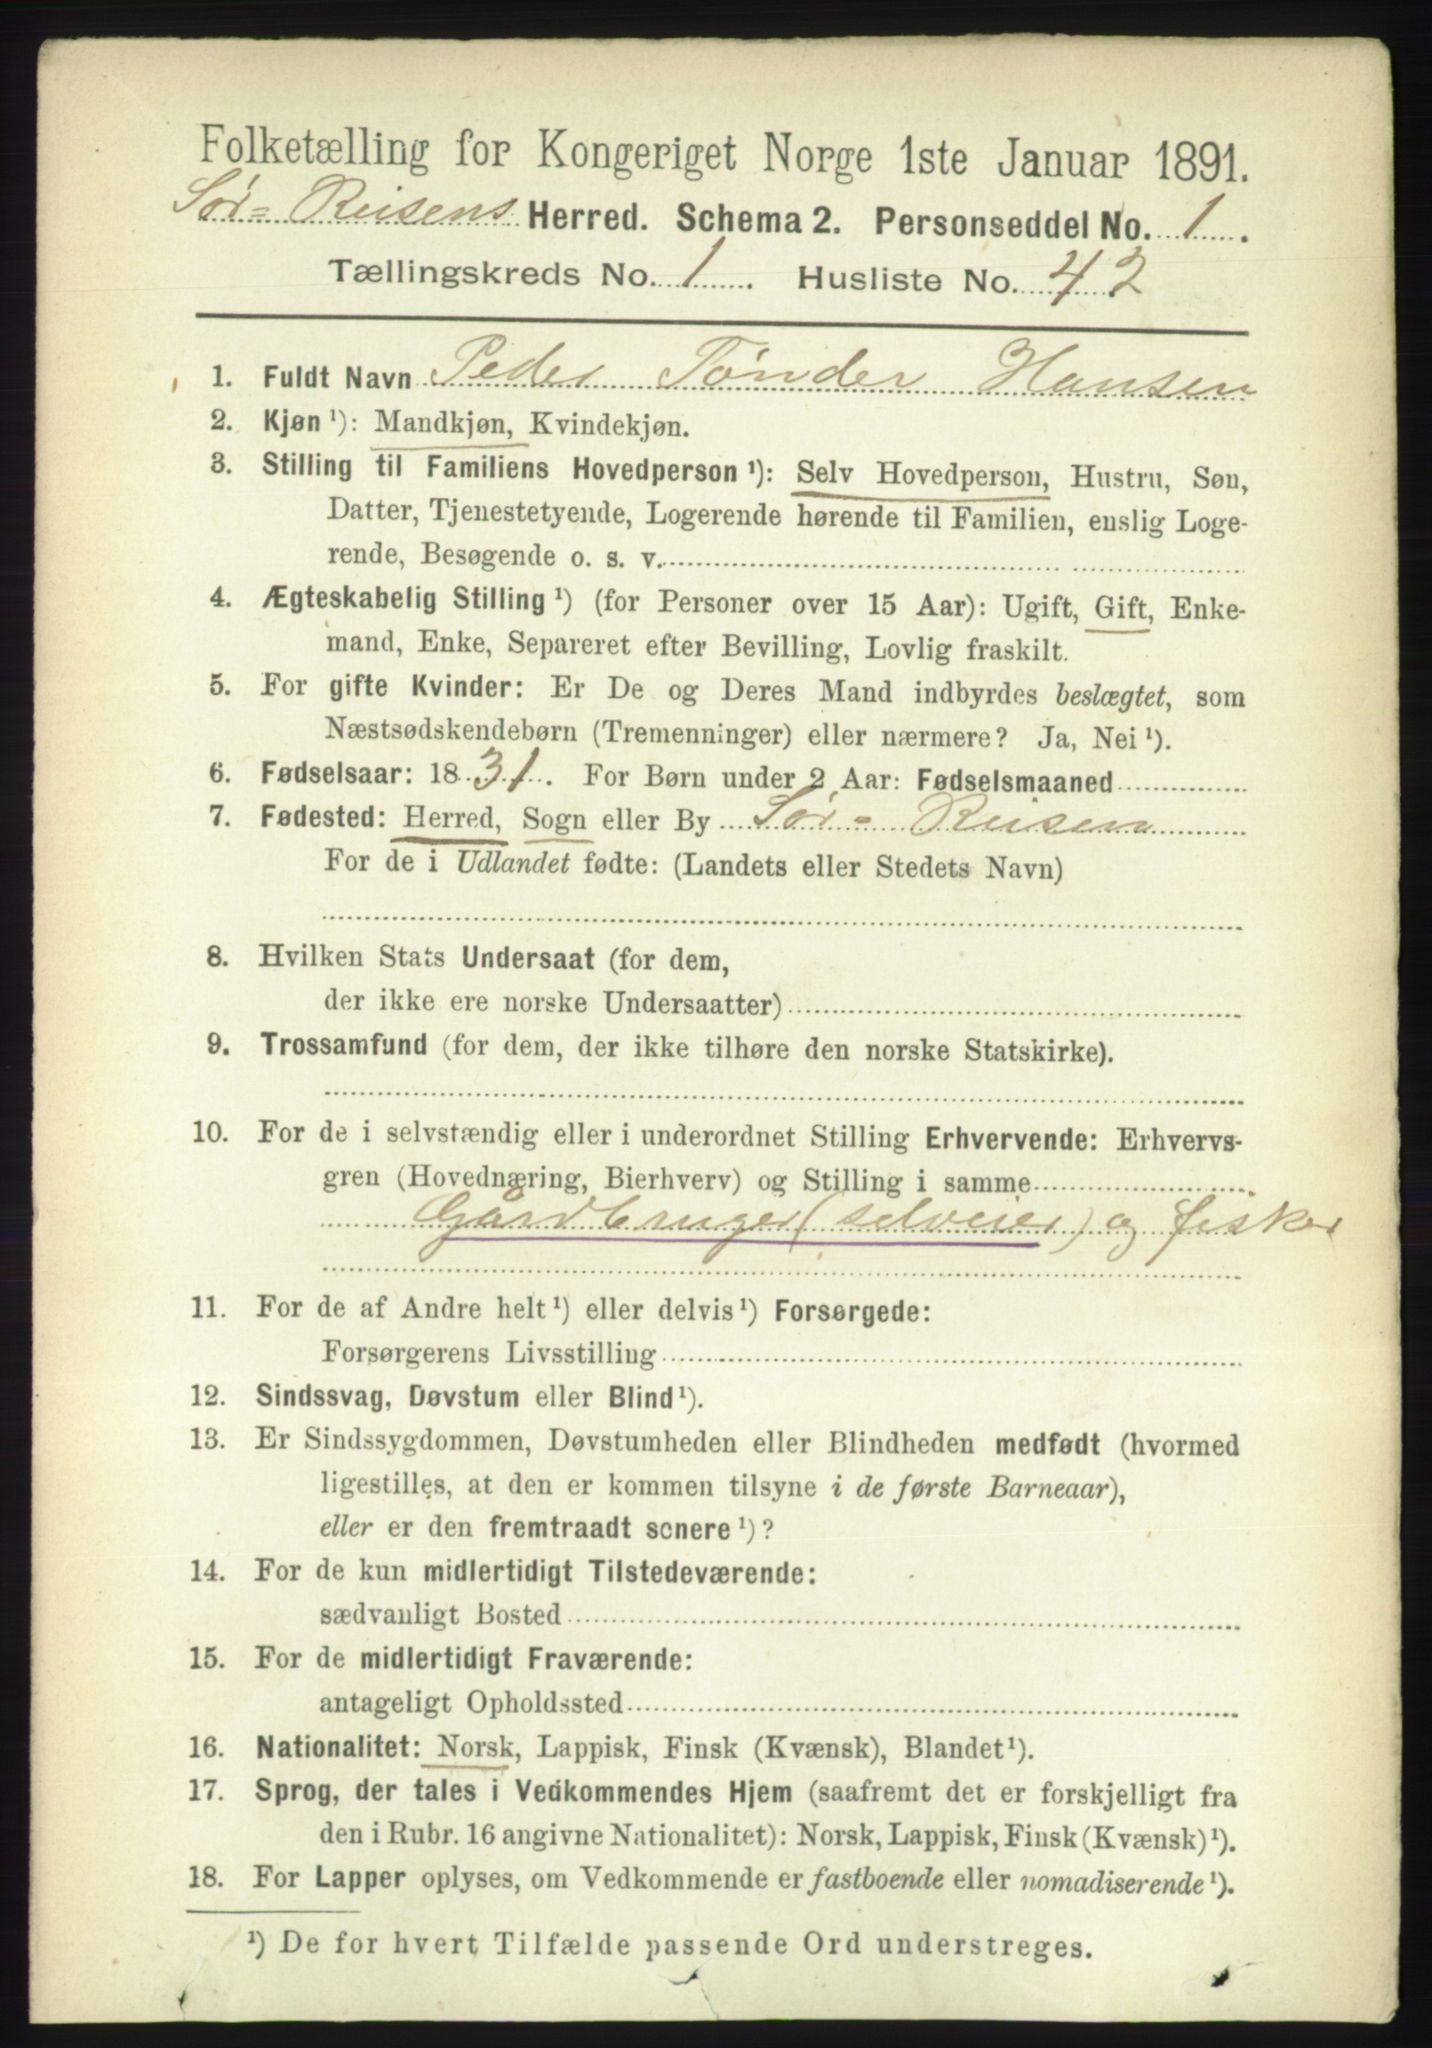 Folketælling for Kongeriget Norge 1ste Januar 1891.
Sør-Reisens Herred. Schema 2. Personseddel No. 1.
Tællingskreds No. 1. Husliste No. 42
1. Fuldt Navn Peder Tønder Hansen
2. Kjøn ¹): Mandkjøn, Kvindekjøn.
3. Stilling til Familiens Hovedperson ¹): Selv Hovedperson, Hustru, Søn,
Datter, Tjenestetyende, Logerende hørende til Familien, enslig Loge-
rende, Besøgende o. s. v.
4. Ægteskabelig Stilling ¹) (for Personer over 15 Aar): Ugift, Gift, Enke-
mand, Enke, Separeret efter Bevilling, Lovlig fraskilt.
5. For gifte Kvinder: Er De og Deres Mand indbyrdes beslægtet, som
Næstsødskendebørn (Tremenninger) eller nærmere? Ja, Nei ¹).
6. Fødselsaar: 1831. For Børn under 2 Aar: Fødselsmaaned
7. Fødested: Herred, Sogn eller By Sør-Reisen
For de i Udlandet fødte: (Landets eller Stedets Navn)
8. Hvilken Stats Undersaat (for dem,
der ikke ere norske Undersaatter)
9. Trossamfund (for dem, der ikke tilhøre den norske Statskirke).
10. For de i selvstændig eller i underordnet Stilling Erhvervende: Erhvervs-
gren (Hovednæring, Bierhverv) og Stilling i samme
Gårdbruger (selveier) og fisker
11. For de af Andre helt ¹) eller delvis ¹) Forsørgede:
Forsørgerens Livsstilling
12. Sindssvag, Døvstum eller Blind ¹).
13. Er Sindssygdommen, Døvstumheden eller Blindheden medfødt (hvormed
ligestilles, at den er kommen tilsyne i de første Barneaar),
eller er den fremtraadt senere ¹)?
14. For de kun midlertidigt Tilstedeværende:
sædvanligt Bosted
15. For de midlertidigt Fraværende:
antageligt Opholdssted
16. Nationalitet: Norsk, Lappisk, Finsk (Kvænsk), Blandet ¹).
17. Sprog, der tales i Vedkommendes Hjem (saafremt det er forskjelligt fra
den i Rubr. 16 angivne Nationalitet): Norsk, Lappisk, Finsk (Kvænsk) ¹).
18. For Lapper oplyses, om Vedkommende er fastboende eller nomadiserende ¹).
¹) De for hvert Tilfælde passende Ord understreges.